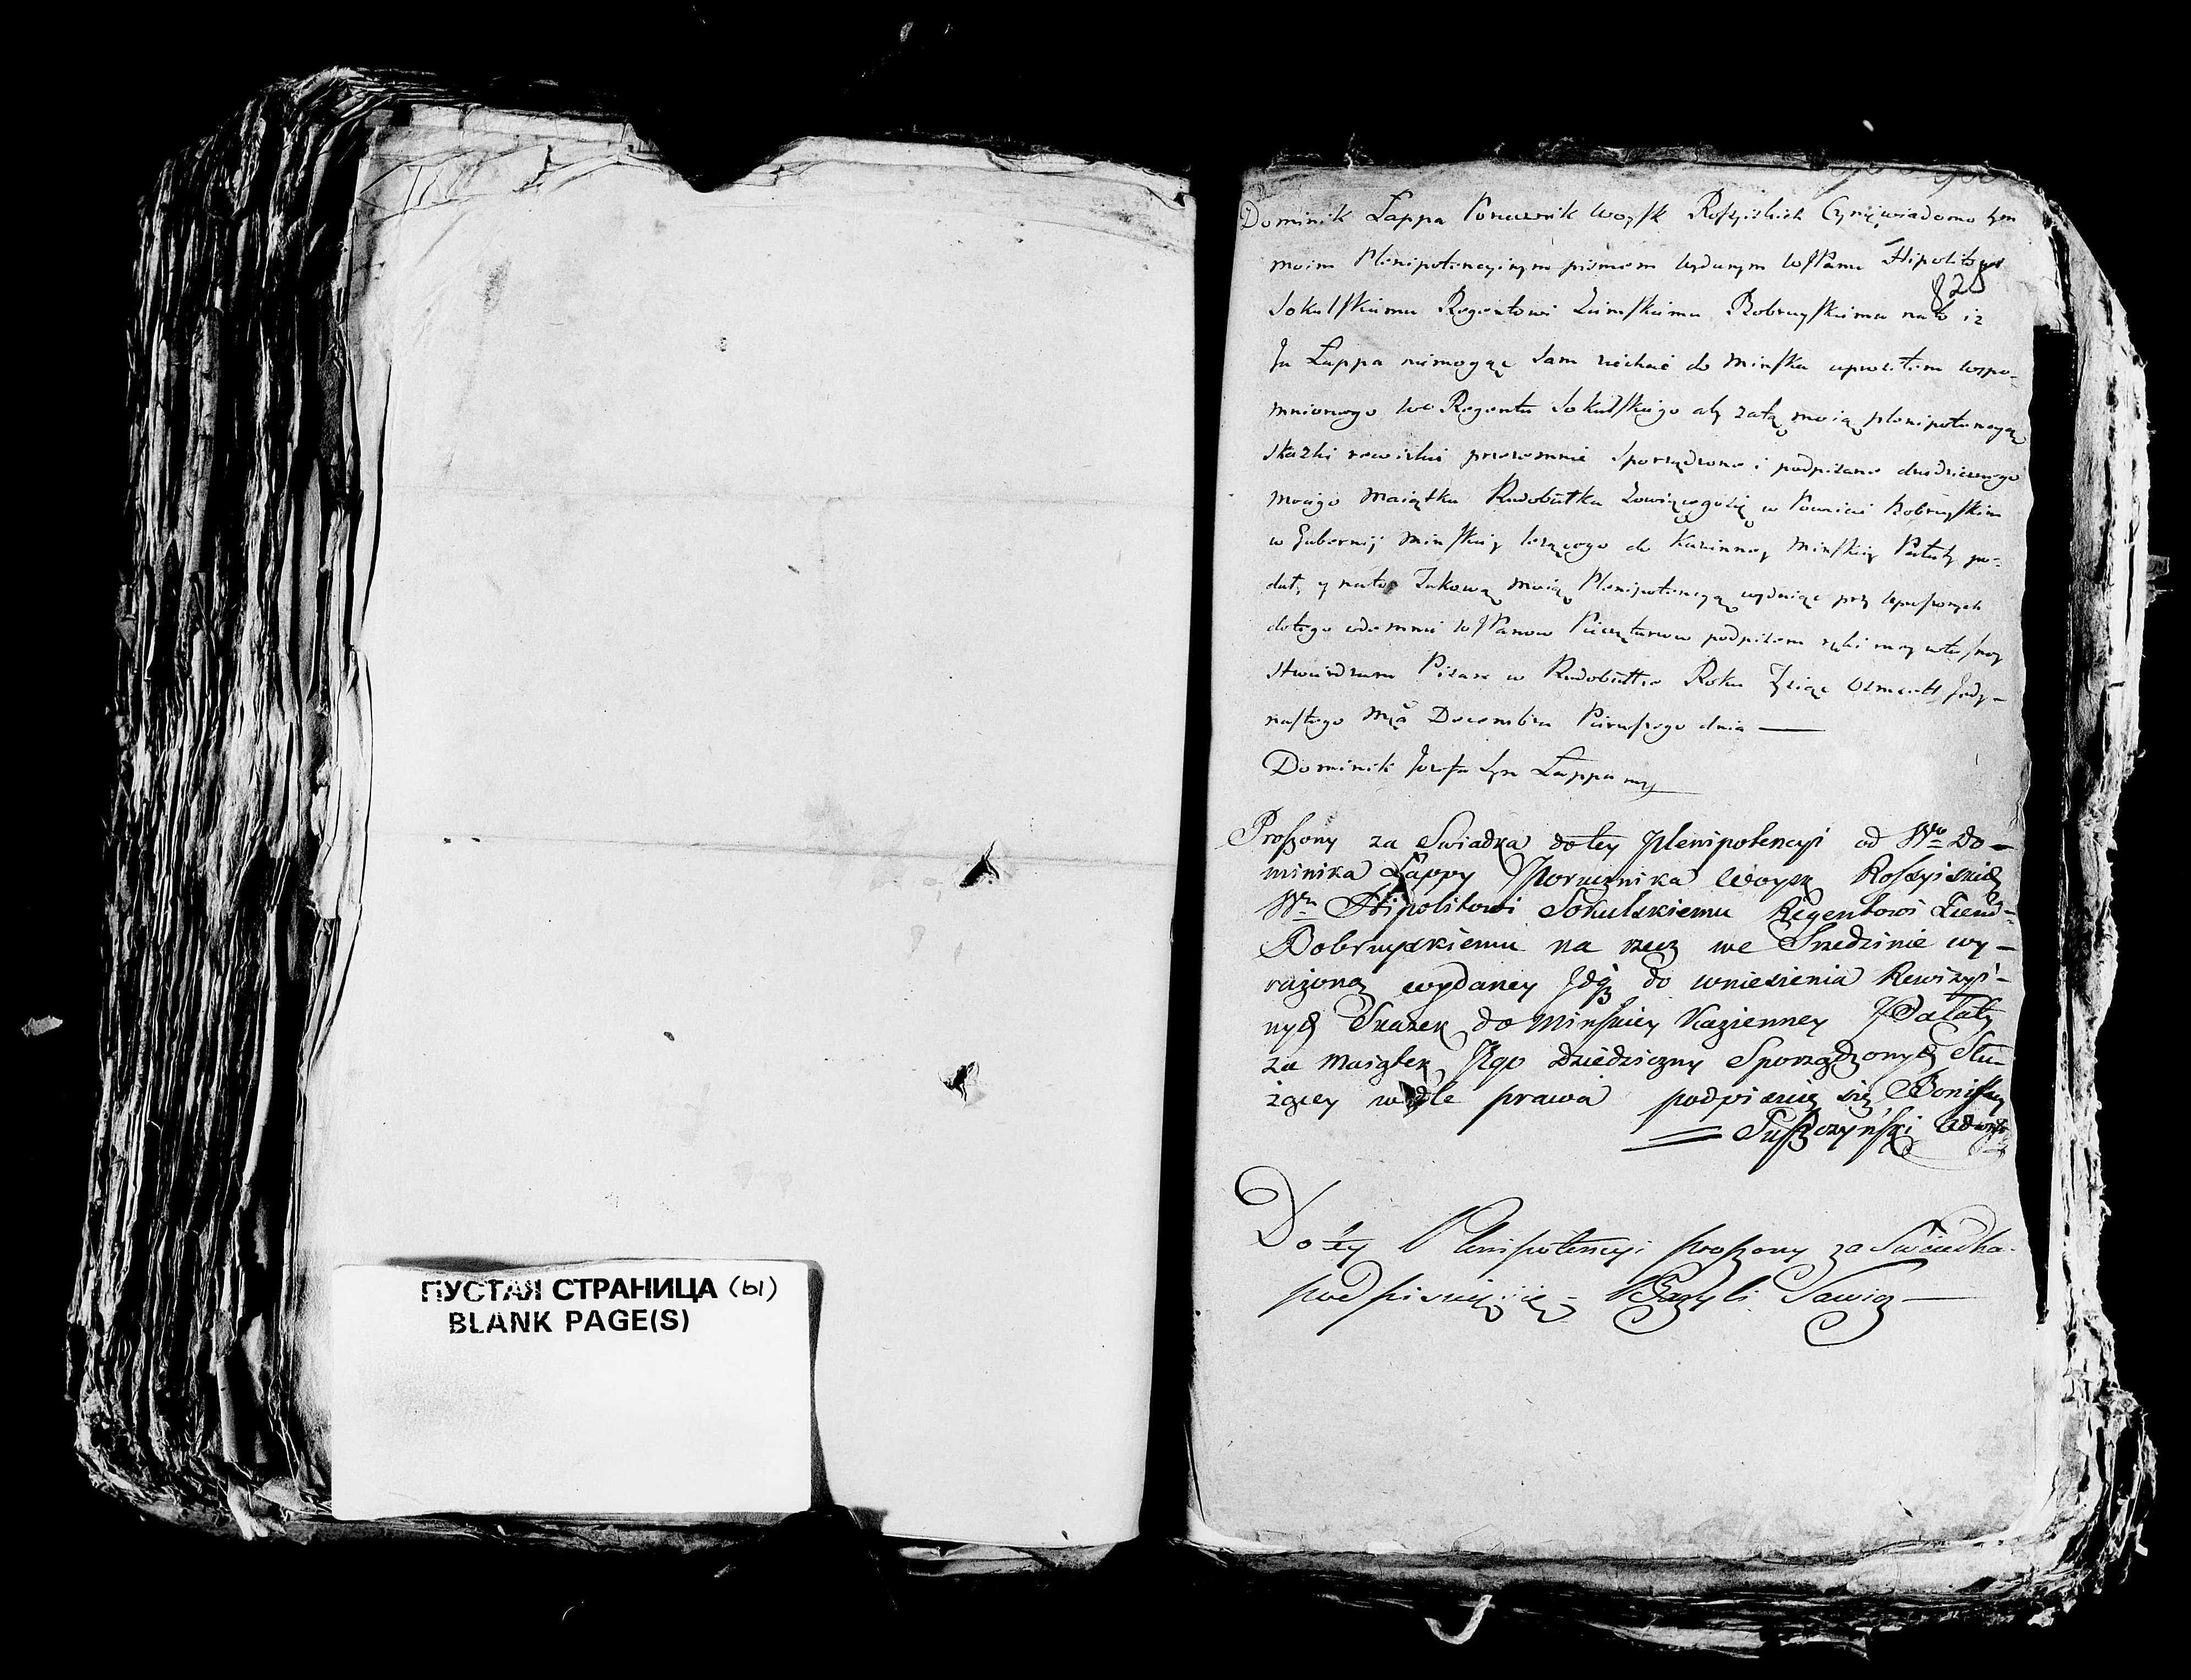 ПУСТАЯ СТРАНИЦА (ы)
BLANK PAGE(S)
820
Dominik Łappa Porucznik Woysk Rossyiskich Czynię wiadomo tym
moim Plenipotencyinym pismem wydanym WJPanu Hipolitowi
Sokulskiemu Regentowi Ziemskiemu Bobruyskiemu na to iż
Ja Łappa niemogąc sam ziechać do Minska uprosiłem wspo-
mnionego Regenta Sokulskiego aby zatą moią plenipotencyą
skazki rewizkie przezemnie sporządzone i podpisane dziedzicznego
moiego Maiątku Rudobiełka zowiącegosię w Powiecie Bobruyskim
w Gubernij Minskiey leżącego do Kazienney Minskiey Pałaty po-
dał, y nato takową moią Plenipotencyą wydaiąc przy uproszonych
dotego odemnie WJPanow Pieczętarzow podpisem ręki mey własney
stwierdzam Pisan w Rudobiełce Roku Tysiąc Ośmset Jedy-
nastego Mca Decembra Pierwszego dnia —
Dominik Jozefa Syn Łappa mp
Proszony za Swiadka dotey Plenipotencyi od Wo Do-
minika Łappy Porucznika Woysk Rossyiskich
Wu Hipolitowi Sokulskiemu Regentowi Ziem-
Bobruyskiemu na rzecz we Srzedzinie wy-
rażoną wydaney do wniesienia Rewizyi-
nych Skazek do Minskiey Kazienney Pałaty
za Maiątek Jego dziedziczny Sporządzonych Słu-
żącey wedle prawa podpisuię się Bonifacy
Suszczyński
Do tey Plenipotencyi proszony za Swiadka
podpisuię się – Bazyli Sawicz —